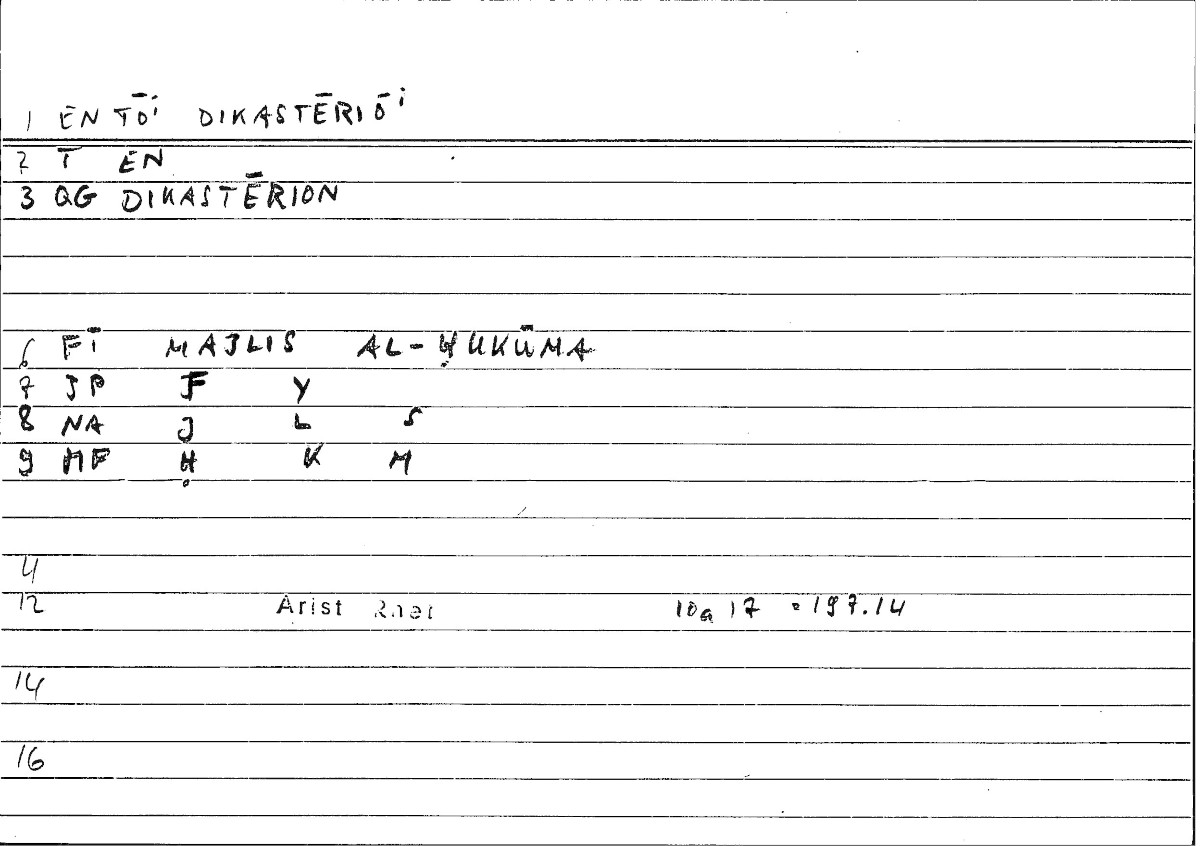 1 EN TŌⁱ DIKASTĒRIŌⁱ
2 T EN
3 QG DIKASTĒRION
6 FĪ MAJLIS AL-ḤUKŪMA
7 JP F Y
8 NA J L S
9 MF Ḥ K M
4
12 Arist Rhet 10a 17 = 197.14
14
16